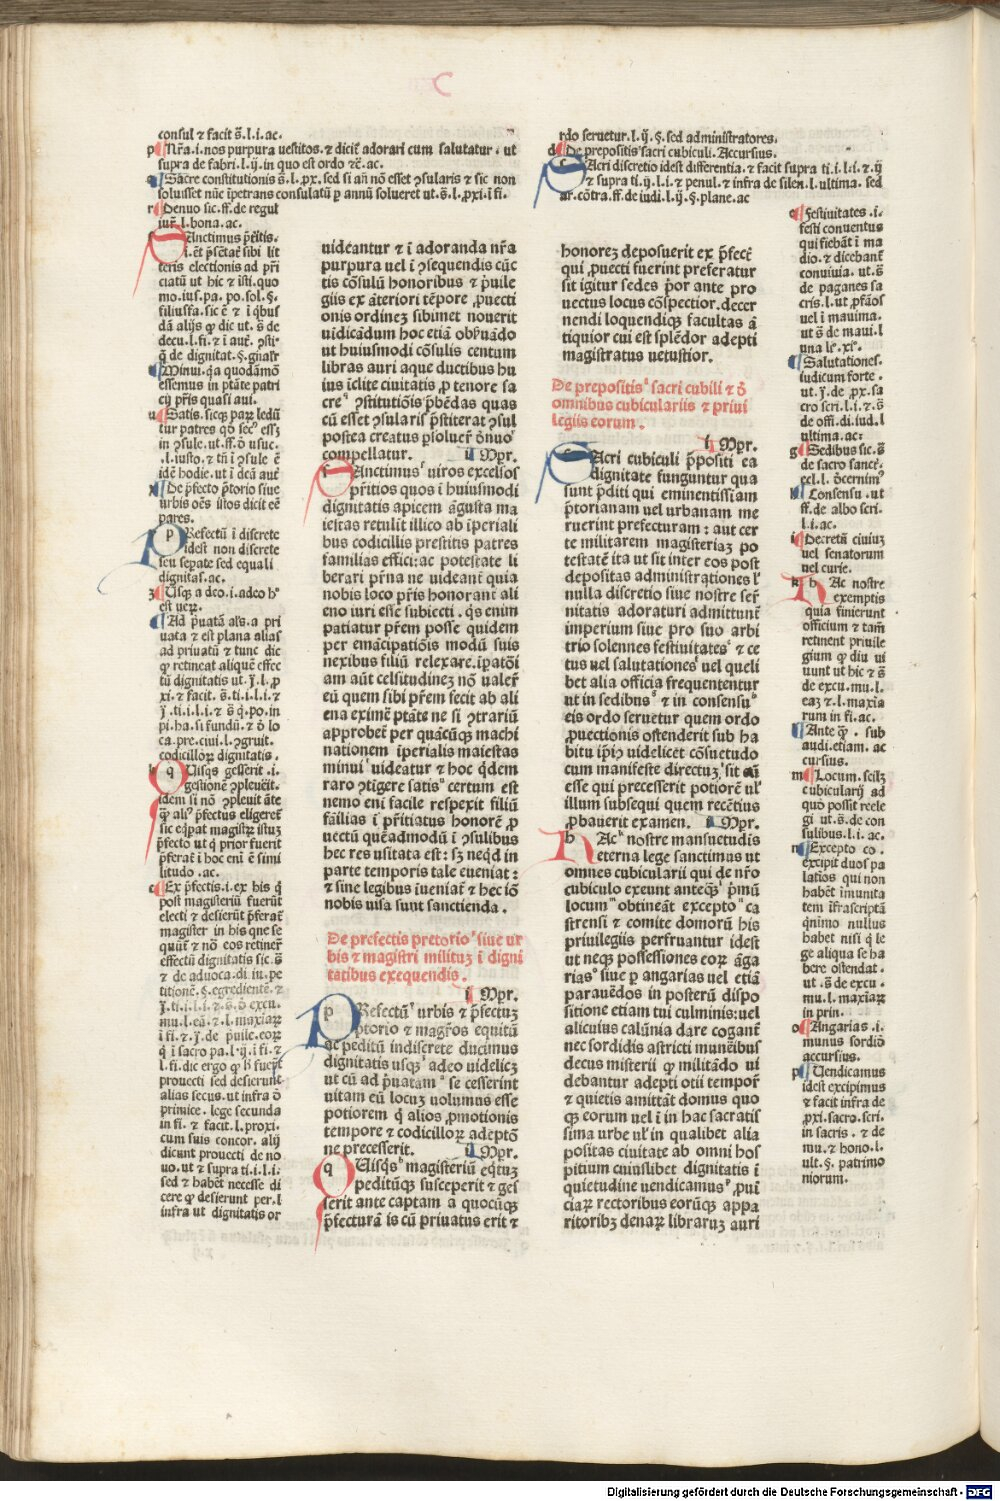 C
consul ⁊ facit s̄. l. i. ac.
Nr̄a .i. nos purpura uestitos. ⁊ dicit̄ adorari cum salutatur. ut
supra de fabri. l. ij. in quo est ordo ⁊c̄. ac.
Sacre constitutionis s̄. l. ꝓx. sed si an̄ nō esset ꝯsularis ⁊ sic non
soluisset nūc īpetrans consulatū ꝑ annū solueret ut. s̄. l. ꝓxi. i fi.
Denuo sic. ff. de regul
iur̄. l. bona. ac.
Sanctimus
teris electionis ad pr̄i
ciatū ut hic ⁊ isti. quo
mo. ius. pa. po. sol. §.
decu. l. fi. ⁊ i aut̄. ꝯsti
Minui. q̄a quodāmō
essemus in ptāte patri
cij pr̄is quasi aui.
tur patres
De p̄fecto p̄torio siue
urbis oēs istos dicit eē
pares.
PRefectū i discrete
idest non discrete
seu sepate sed equali
dignitas. ac.
Usq̄ a deo .i. adeo
est uerꝝ.
Ad p̄uatā als̄. a pri
uata ⁊ est plana alias
ad priuatū ⁊ tunc dic
ꝙ retineat aliquē effec
codicilloꝝ dignitatis.
Quisqs gesserit .i.
litudo. ac.
Ex p̄fectis .i. ex his q̄
post magisteriū fuerūt
electi ⁊ desierūt p̄ferat̄
magister in his q̄ne se
effectū dignitatis sic s̄.
⁊ de aduoca. di. iu. pe
prouecti sed desierunt
alias secus. ut infra ō
primice. lege secunda
in fi. ⁊ facit. l. proxi.
cum suis concor. alij
dicunt prouecti de no
uo. ut ⁊ supra ti. i. l. i.
sed ⁊ habēt necesse di
cere ꝙ desierunt per. l.
infra ut dignitatis or
uideantur ⁊ i adoranda nr̄a
purpura uel i ꝯsequendis cūc
tis cōsulū honoribus ⁊ p̄uile
giis ex āteriori tēpore ꝓuecti
onis ordineꝫ sibimet nouerit
uidicādum hoc etiā obſuādo
ut huiusmodi cōsulis centum
libras auri aque ductibus hu
ius iclite ciuitatis ꝓ tenore sa
cre ꝯstitutiōis p̄bēdas quas
cū esset ꝯsularis p̄stiterat ꝯsul
postea creatus ꝑsoluer̄ ōnuo
compellatur. Impr.
SAnctimus uiros excelsos
pr̄itios quos i huiusmodi
dignitatis apicem āgusta ma
iestas retulit illico ab īperiali
bus codicillis prestitis patres
familias effici: ac potestate li
berari pr̄na ne uideant̄ quia
nobis loco pr̄is honorant̄ ali
eno iuri esse subiecti. q̄s enim
patiatur pr̄em posse quidem
per emācipatiōis modū suis
nexibus filiū relexare. īpatōi
am aūt celsitudineꝫ nō ualer̄
eū quem sibi pr̄em fecit ab ali
ena eximē ptāte ne si ꝯtrariū
approbet̄ per quācūqꝫ machi
nationem īperialis maiestas
minui uideatur ⁊ hoc q̄dem
raro ꝯtigere satis certum est
nemo eni facile respexit filiū
fāilias i pr̄itiatus honorē ꝓ
uectū quēadmodū i ꝯsulibus
hec res usitata est: sꝫ neqꝫd in
parte temporis tale eueniat:
⁊ sine legibus iueniat̄ ⁊ hec iō
nobis uisa sunt sanctienda.
De prefectis pretorio siue ur
bis ⁊ magistri militum i digni
tatibus exequendis.
Impr.
PRefectū urbis ⁊ p̄fectuꝫ
ptorio ⁊ magr̄os equitū
ac peditū indiscrete ducimus
dignitatis usqꝫ adeo uidelicꝫ
ut cū ad p̄uatam se cesserint
uitam eū locuꝫ uolumus esse
potiorem q̄ alios ꝓmotionis
tempore ⁊ codicilloꝝ adeptō
ne precesserit. Impr.
QUisqs magisteriū eqꝫtuꝫ
peditūqꝫ susceperit ⁊ ges
serit ante captam a quocūqꝫ
p̄fecturā is cū priuatus erit ⁊
rdo seruetur. l. ij. §. sed administratores.
De prepositis sacri cubiculi. Accursius.
SAcri discretio idest differentia. ⁊ facit supra ti. i. l. i. ⁊ ij
⁊ supra ti. ij. l. i. ⁊ penul. ⁊ infra de silen. l. ultima. sed
ar. cōtra. ff. de iudi. l. ij. §. plane. ac
honoreꝫ deposuerit ex p̄fect̄
qui ꝓuecti fuerint preferatur
sit igitur sedes p̄or ante pro
uectus locus cōspectior. decer
nendi loquendiqꝫ facultas ā
tiquior cui est splēdor adepti
magistratus uetustior.
De prepositis sacri cubili ⁊ ō
omnibus cubiculariis ⁊ priui
legiis eorum.
Impr.
SAcri cubiculi p̄positi ea
dignitate funguntur qua
sunt p̄diti qui eminentissīam
p̄torianam uel urbanam me
ruerint prefecturam: aut cer
te militarem magisteriaꝫ po
testatē ita ut sit inter eos post
depositas administrationes ł
nulla discretio siue nostre ser̄
nitatis adoraturi admittunt̄
imperium siue pro suo arbi
trio solennes festiuitates ⁊ ce
tus uel salutationes uel queli
bet alia officia frequententur
ut in sedibus ⁊ in consensu
eis ordo seruetur quem ordo
ꝓuectionis ostenderit sub ha
bitu ip̄ꝫ uidelicet cōsuetudo
cum manifeste directuꝫ sit eū
esse qui precesserit potiorē ul
illum subsequi quem recētius
ꝓbauerit examen. Impr.
HAc nostre mansuetudis
eterna lege sanctimus ut
omnes cubicularii qui de nr̄o
cubiculo exeunt anteqꝫ p̄mū
locum obtineāt excepto ca
strensi ⁊ comite domorū his
priuilegiis perfruantur idest
ut neqꝫ possessiones eoꝝ āga
rias siue ꝑ angarias uel etiā
parauēdos in posterū dispo
sitione etiam tui culminis: uel
alicuius calūnia dare cogant̄
nec sordidis astricti munēibus
decus misterii ꝙ militādo ui
debantur adepti otii tempor̄
⁊ quietis amittāt domus quo
qꝫ eorum uel i in hac sacratis
sima urbe ul in qualibet alia
positas ciuitate ab omni hos
pitium cuiuslibet dignitatis i
quietudine uendicamus ꝓuī
ciaꝝ rectoribus eorūqꝫ appa
ritoribꝫ denaꝝ libraruꝫ auri
Festiuitates .i.
festi conuentus
qui fiebāt i ma
dio. ⁊ dicebant̄
conuiuia. ut. s̄.
de paganes sa
cris. l. ut ꝓfāos
uel i maiuma.
ut s̄ de maiu. l
una le. xi.
Salutationes.
iudicum forte.
ut. j. de. ꝓx. sa
cro scri. l. i. ⁊ s̄
de offi. di. iud. l
ultima. ac:
Sedibus sic. s̄
de sacro sanct̄.
ecl. l. ōcernimꝰ
Consensu. ut
ff. de albo scri.
l. i. ac.
Decretū ciuiuꝫ
uel senatorum
uel curie.
HAc nostre
exemptis
quia finierunt
officium ⁊ tam̄
retinent priuile
gium ꝙ diu ui
uunt ut hic ⁊ s̄
de excu. mu. l.
eaꝫ ⁊ l. maxīa
rum in fi. ac.
Ante qꝫ. sub
audi. etiam. ac
cursius.
Locum. scilꝫ
cubicularij ad
quō possit reele
gi ut. s̄. de con
sulibus. l. i. ac.
Excepto co.
excipit duos pa
latios qui non
habēt īmunita
tem īfrascriptā
q̄nimo nullus
habet nisi q̄ le
ge aliqua se ha
bere ostendat.
ut. s̄. de excu.
mu. l. maxiaꝝ
in prin.
Angarias .i.
munus sordiō
accursius.
Uendicamus
idest excipimus
⁊ facit infra de
ꝓxi. sacro. scri.
in sacris. ⁊ de
mu. ⁊ hono. l.
ult. §. patrimo
niorum.
Digitalisierung gefördert durch die Deutsche Forschungsgemeinschaft - DFG